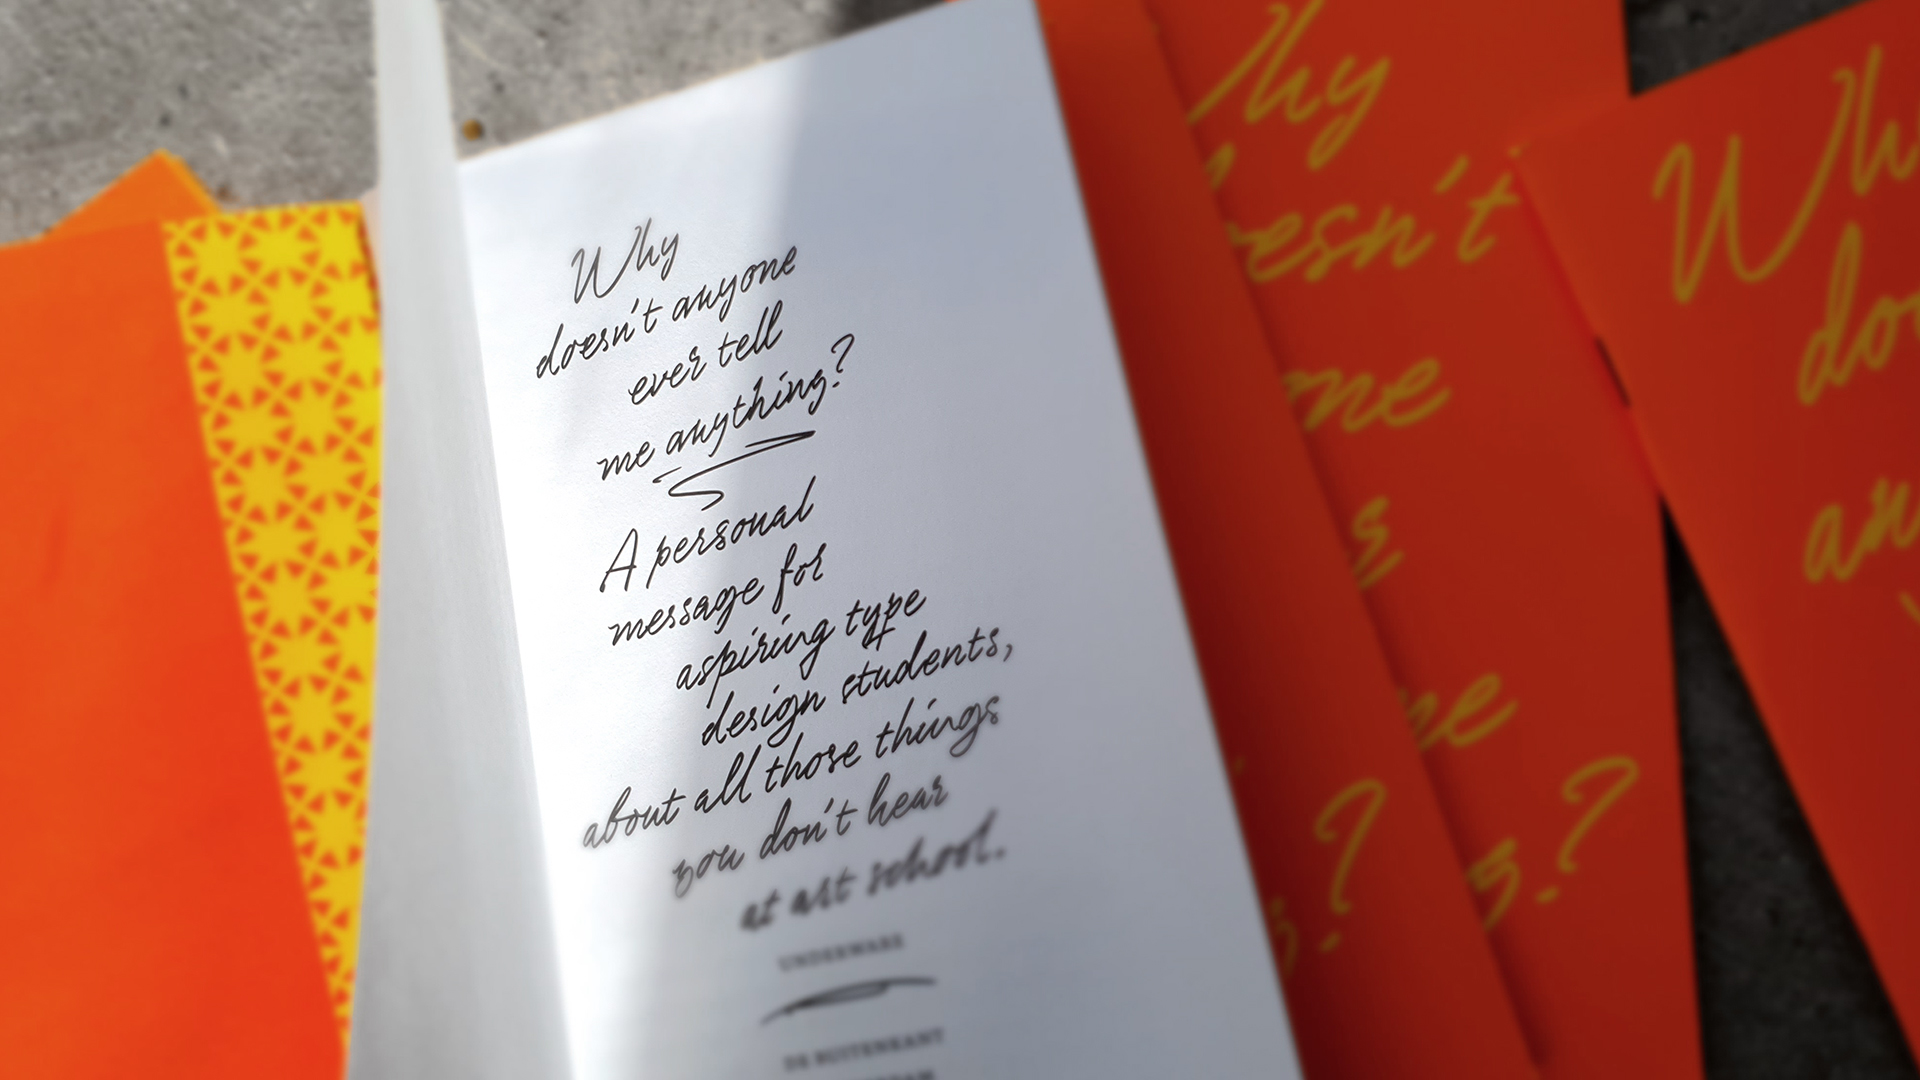 Why
doesn't anyone
ever tell
me anything?
A personal
message for
aspiring type
design students,
about all those things
you don't hear
at art school.
UNDERWARE
DE BUITENKANT
Why
doesn't
Why